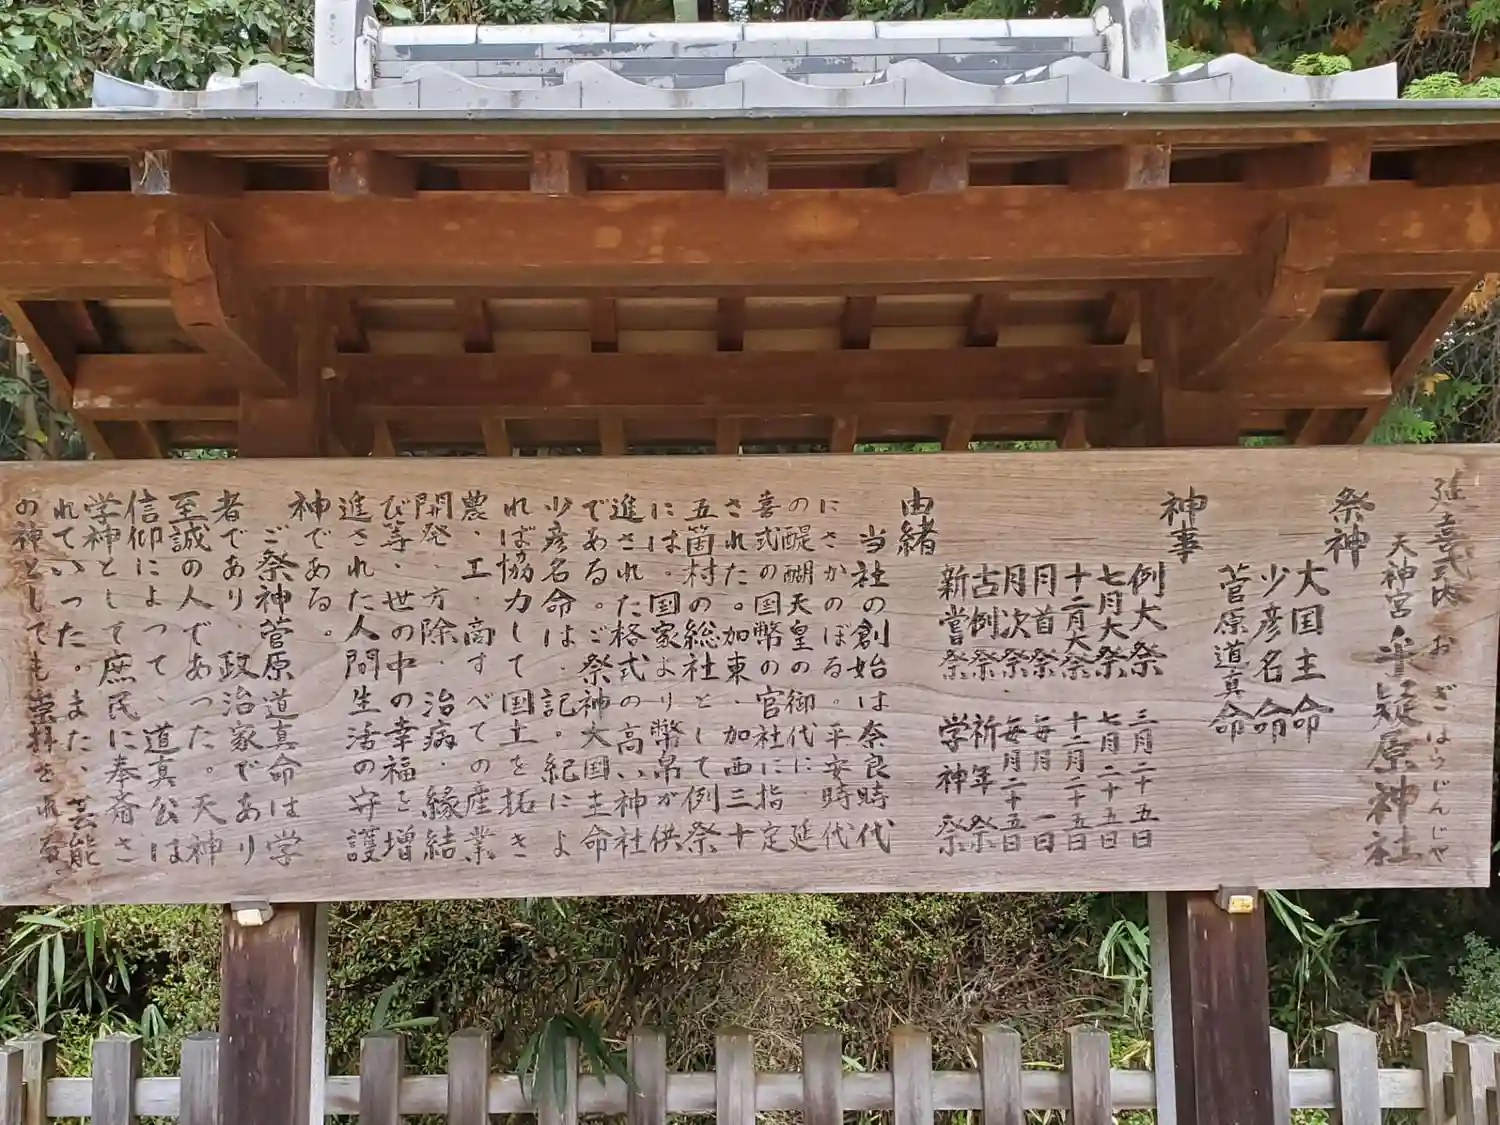 延喜式内 おざはらじんじゃ
天神宮 乎疑原神社
祭神
大国主命
少彦名命
菅原道真命
神事
例大祭 三月二十五日
七月大祭 七月二十五日
十二月大祭 十二月二十五日
月首祭 毎月一日
月次祭 毎月二十五日
古例祭 祈年祭
新嘗祭 学神祭
由緒
当社の創始は奈良時代
にさかのぼる。平安時代
の醍醐天皇の御代に 延
喜式の国幣の官社に指定
された。加東、加西三十
五箇村の総社として例祭
には、国家より幣帛が供
進された格式の高い神社
である。ご祭神大国主命
少彦名命は、記。紀によ
れば協力して国土を拓き
農、工、商すべての産業
開発、方除、治病、縁結
び等、世の中の幸福を増
進された人間生活の守護
神である。
ご祭神菅原道真命は学
者であり、政治家であり
至誠の人であった。天神
信仰によって、道真公は
学神として庶民に奉斎さ
れていった。また、芸能
の神としても崇拝される。